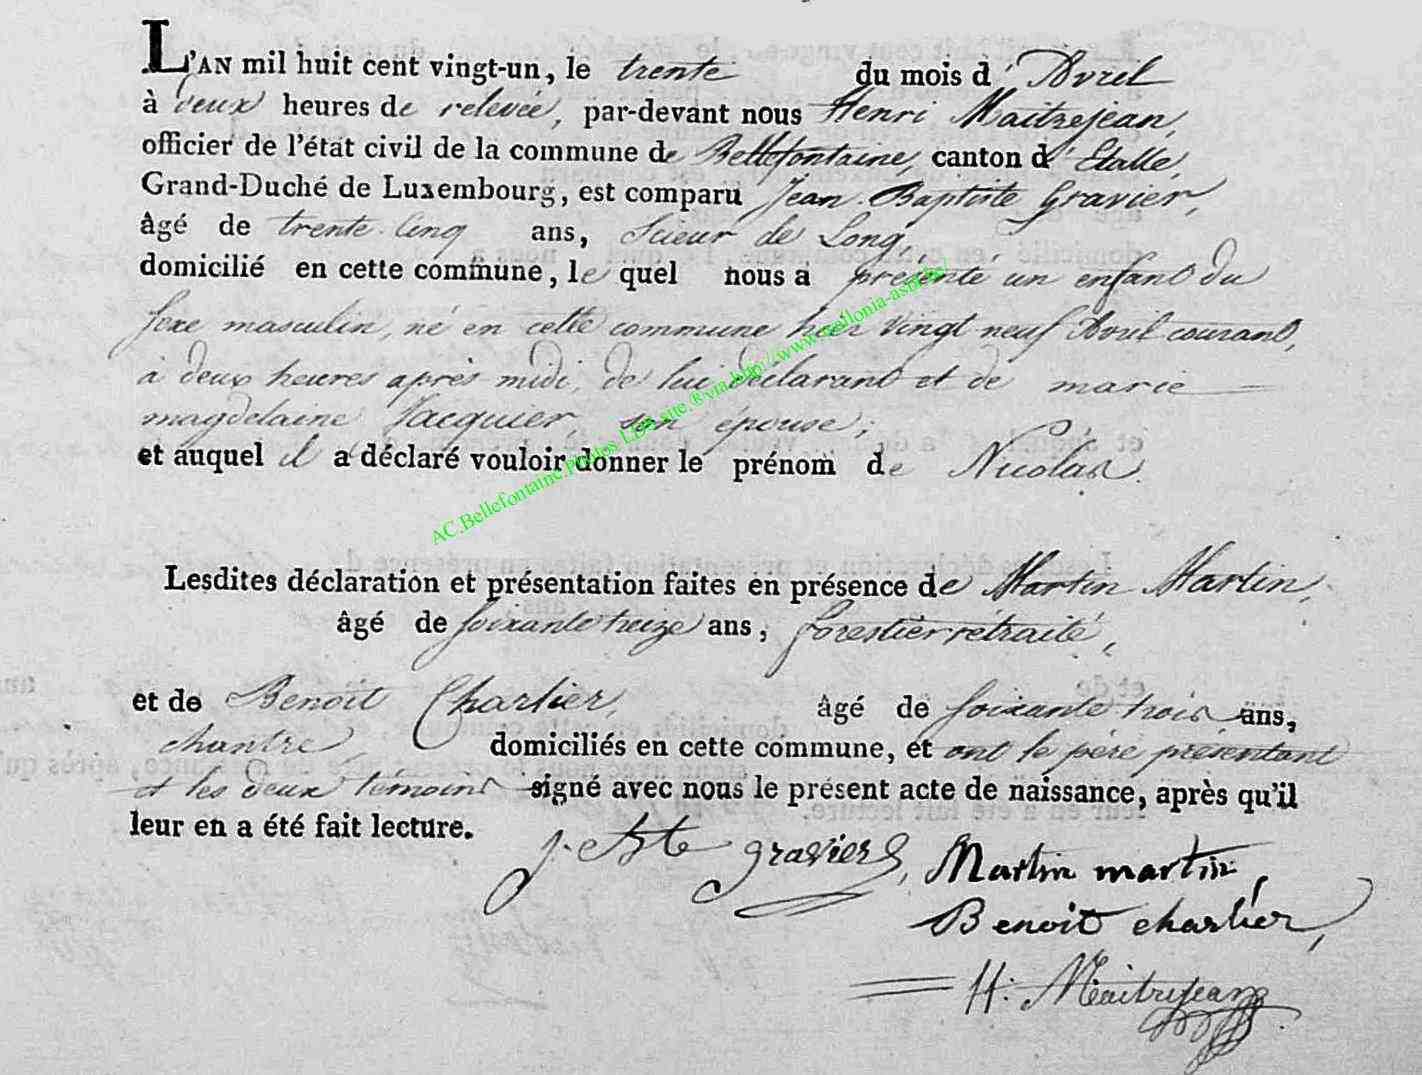 L'AN mil huit cent vingt-un, le trente du mois d'Avril
à deux heures de relevée, par-devant nous Henri Maitrejean,
officier de l'état civil de la commune de Bellefontaine, canton d'Etalle,
Grand-Duché de Luxembourg, est comparu Jean-Baptiste Gravier,
âgé de trente-cinq ans, scieur de Long,
domicilié en cette commune, le quel nous a présenté un enfant du
sexe masculin, né en cette commune hier vingt neuf Avril courant,
à deux heures après midi, de lui déclarant et de marie
magdelaine Jacquier, son épouse;
et auquel il a déclaré vouloir donner le prénom de Nicolas.
AC.Bellefontaine.Photos LDS site.®via.http://www.bellonia-asbl.be/
Lesdites déclaration et présentation faites en présence de Martin Martin,
âgé de soixante treize ans, forestier retraité,
et de Benoit Charlier, âgé de soixante trois ans,
chantre domiciliés en cette commune, et ont le père présentant
et les deux témoins signé avec nous le présent acte de naissance, après qu'il
leur en a été fait lecture.
j. bte gravier, Martin martin,
Benoit charlier,
H. Maitrejean